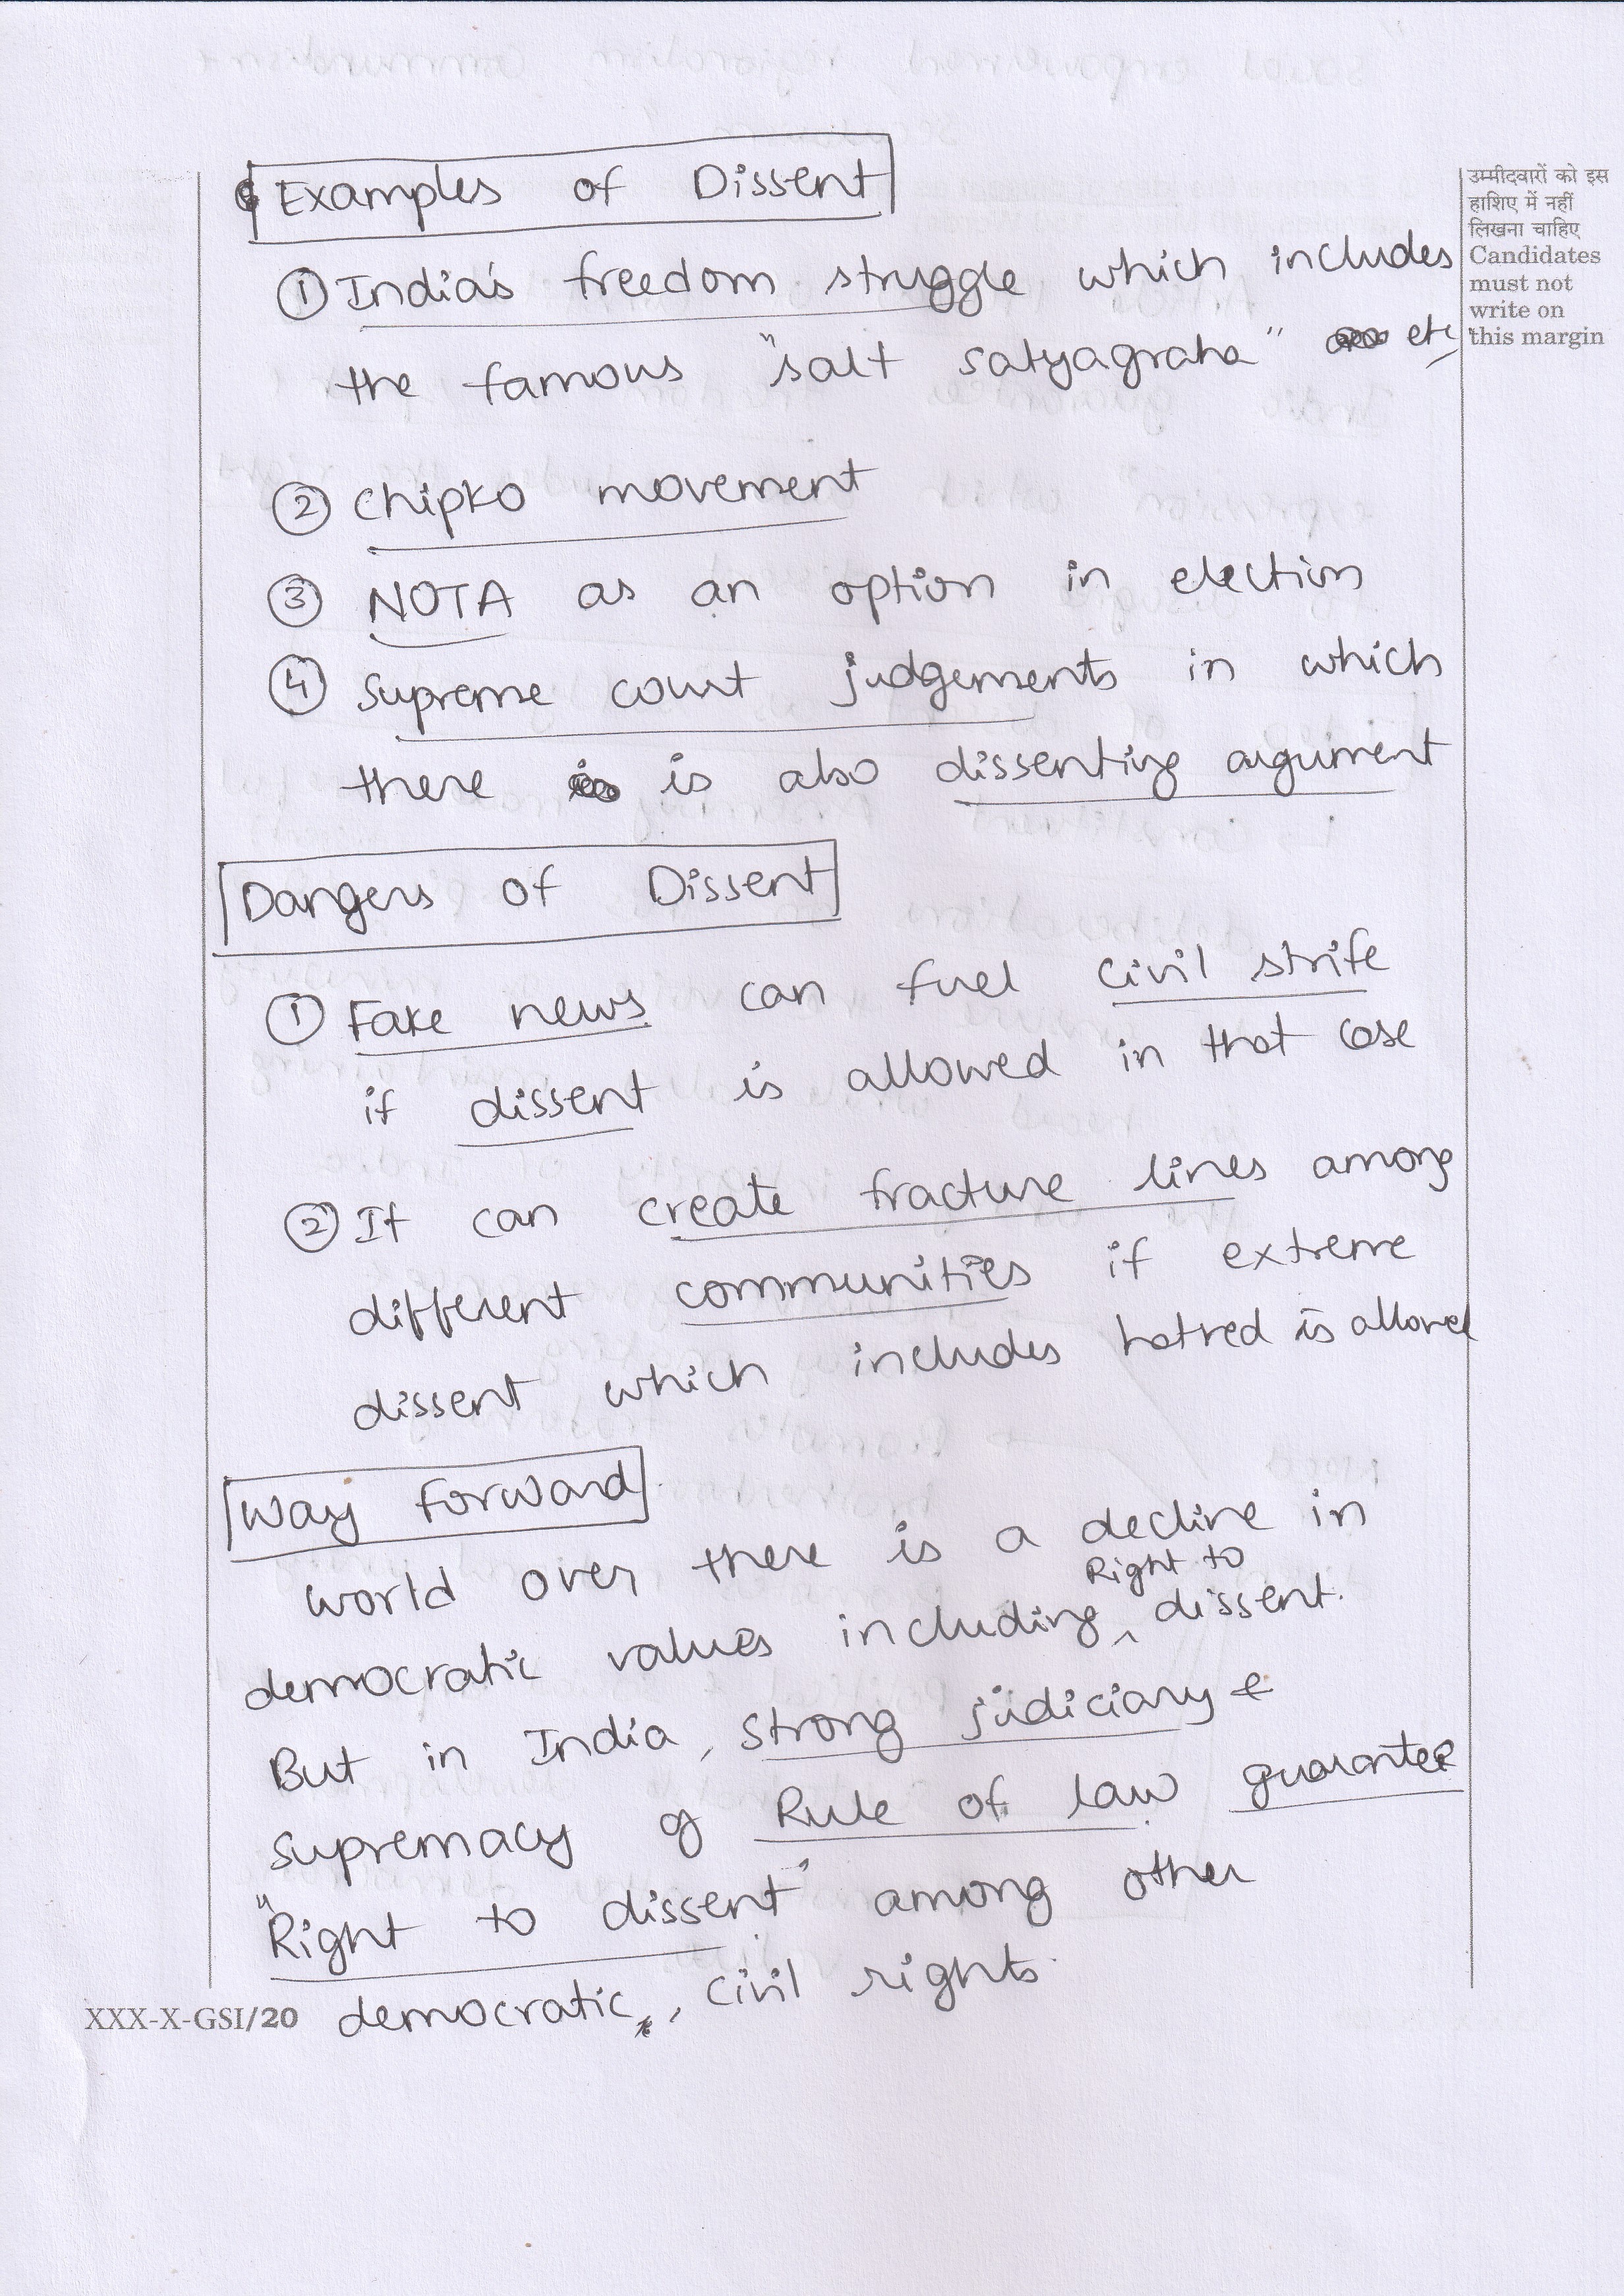 Examples of Dissent
① India's freedom struggle which includes
the famous "salt satyagraha" etc
② Chipko movement
③ NOTA as an option in election
④ Supreme court judgements in which
there is also dissenting argument
Dangers of Dissent
① Fake news can fuel civil strife
if dissent is allowed in that case
② It can create fracture lines among
different communities if extreme
dissent which includes hatred is allowed
Way forward
World over there is a decline in
democratic values including Right to dissent.
But in India, strong judiciary &
supremacy of Rule of law guarantee
"Right to dissent" among other
democratic, civil rights.
XXX-X-GSI/20
उम्मीदवारों को इस
हाशिए में नहीं
लिखना चाहिए
Candidates
must not
write on
this margin